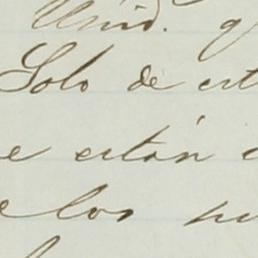 Unid. q
Solo de est
e están
e los